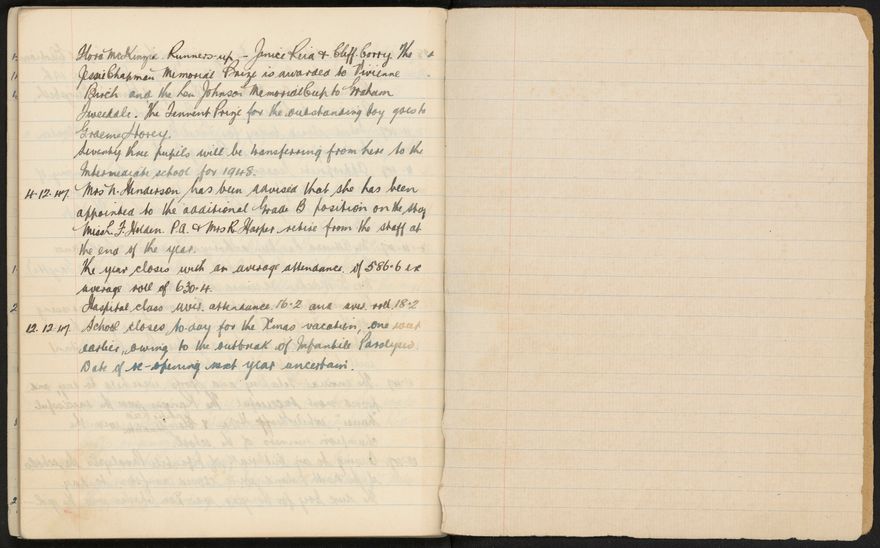 Flora McKinzie Runners-up - Janice Reid & Cliff Corry. The
Jessie Chapman Memorial Prize is awarded to Vivienne
Birch and the Len Johnson Memorial Cup to Graham
Tweedale. The Tennent Prize for the outstanding boy goes to
Graeme Storey.
Seventy three pupils will be transferring from here to the
Intermediate school for 1948.
4.12.47 Mrs N. Henderson has been advised that she has been
appointed to the additional Grade B position on the staff
Miss L. F. Holden P.A. & Mrs R Harper retire from the staff at
the end of the year.
The year closes with an average attendance of 586.6 ex
average roll of 630.4.
Hospital class aver. attendance 16.2 and aver. roll 18.2
12.12.47 School closes to-day for the Xmas vacation, one
earlier, owing to the outbreak of Infantile Paralysis.
Date of re-opening next year uncertain.